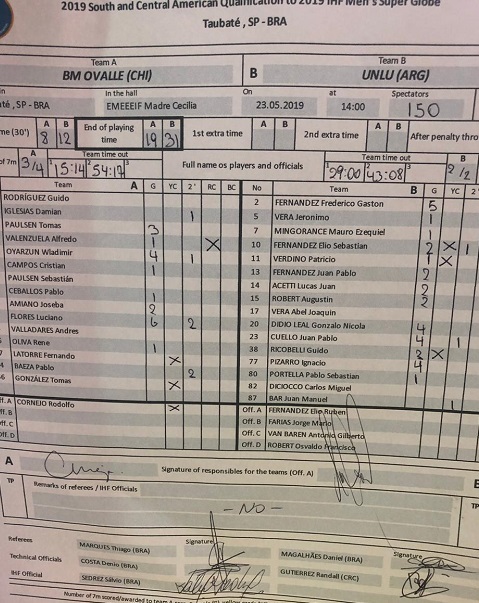 2019 South and Central American Qualification to 2019 IHF Men's Super Globe
Taubaté, SP - BRA
Team A Team B
BM OVALLE (CHI) B UNLU (ARG)
In the hall On at Spectators
té, SP - BRA EMEEEIF Madre Cecilia 23.05.2019 14:00 150
me (30') A B End of playing time A B 1st extra time A B 2nd extra time A B After penalty thro
8 12 19 31
of 7m Team time out Full name os players and officials Team time out
3/4 1 15:14 2 54:17 3 1 29:00 2 43:08 3 2/2
Team A G YC 2' RC BC No Team B G YC 2'
RODRÍGUEZ Guido 2 FERNANDEZ Frederico Gaston 5
IGLESIAS Damian 1 5 VERA Jeronimo 1
PAULSEN Tomas 3 7 MINGORANCE Mauro Ezequiel 1
VALENZUELA Alfredo 1 X 10 FERNANDEZ Elio Sebastian 2 X 1
OYARZUN Wladimir 4 1 11 VERDINO Patricio 1 X
CAMPOS Cristian 1 13 FERNANDEZ Juan Pablo 2
PAULSEN Sebastián 14 ACETTI Lucas Juan 2
CEBALLOS Pablo 1 15 ROBERT Augustin 2
AMIANO Joseba 2 17 VERA Abel Joaquin
FLORES Luciano 6 2 20 DIDIO LEAL Gonzalo Nicola 4
VALLADARES Andres 23 CUELLO Juan Pablo 4 1
OLIVA Rene 1 38 RICOBELLI Guido 2 X
LATORRE Fernando X 77 PIZARRO Ignacio 4
BAEZA Pablo 2 80 PORTELLA Pablo Sebastian 1
GONZÁLEZ Tomas X 82 DICIOCCO Carlos Miguel
87 BAR Juan Manuel 1
Off. A CORNEJO Rodolfo X Off. A FERNANDEZ Elio Ruben
Off. B Off. B FARIAS Jorge Mario
Off. C Off. C VAN BAREN Antonio Gilberto
Off. D Off. D ROBERT Osvaldo Francisco
A Signature of responsibles for the teams (Off. A)
TP Remarks of referees / IHF Officials TP
- NO -
Referees MARQUES Thiago (BRA) Signature MAGALHÃES Daniel (BRA) Signature
Technical Officials COSTA Denio (BRA) GUTIERREZ Randall (CRC)
IHF Official SEDREZ Sálvio (BRA)